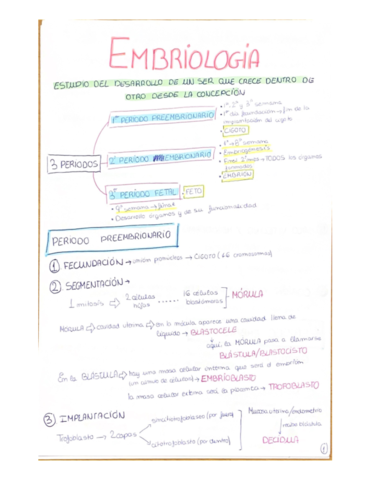 EMBRIOLOGÍA
ESTUDIO DEL DESARROLLO DE UN SER QUE CRECE DENTRO DE
OTRO DESDE LA CONCEPCIÓN
3 PERIODOS
1º PERIODO PREEMBRIONARIO
• 1ª, 2ª y 3ª semana
• 1º día fecundación → fin de la
implantación del cigoto
• CIGOTO
2º PERIODO EMBRIONARIO
• 4ª → 8ª semana
• Embriogénesis
• Final 2º mes → TODOS los órganos
formados
• EMBRIÓN
3º PERIODO FETAL
FETO
• 9ª semana → final
• Desarrollo órganos y de su funcionalidad
PERIODO PREEMBRIONARIO
1 FECUNDACIÓN → unión pronúcleos → CIGOTO (46 cromosomas)
2 SEGMENTACIÓN →
1 mitosis ⇒ 2 células hijas ...... 16 células blastómeras → MÓRULA
MÓRULA → cavidad uterina → en la mórula aparece una cavidad llena de
líquido → BLASTOCELE
aquí la MÓRULA pasa a llamarse
BLÁSTULA/BLASTOCISTO
En la BLÁSTULA → hay una masa celular interna que será el embrión
(un cúmulo de células) → EMBRIOBLASTO
la masa celular externa será la placenta → TROFOBLASTO
3 IMPLANTACIÓN
Trofoblasto → 2 capas
sincitiotrofoblasto (por fuera)
citotrofoblasto (por dentro)
Mucosa uterina/endometrio
DECIDUA
1